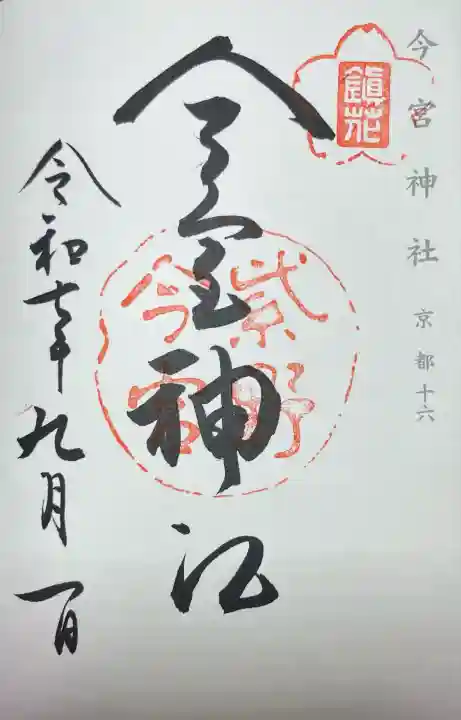 今宮神社 京都十六
鎮花
今宮神社
紫野
今宮
令和七年九月一日